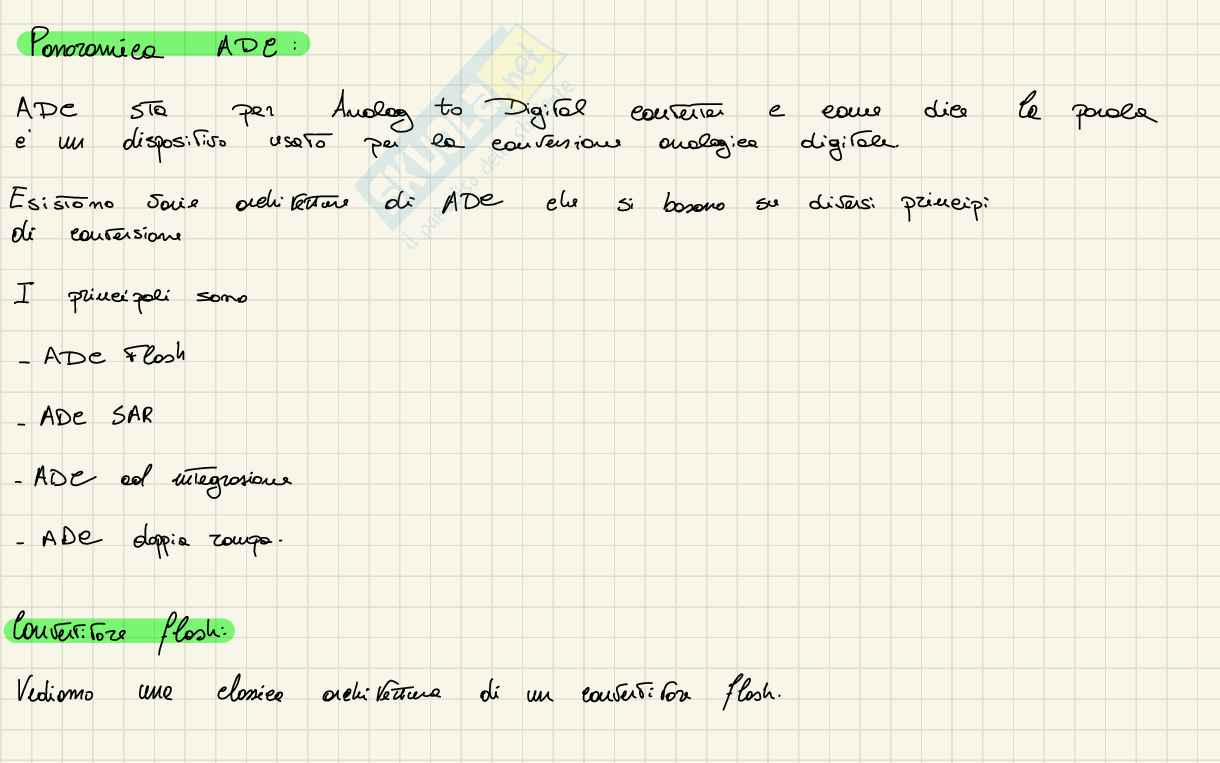 Panoramica ADC:
ADC sta per Analog to Digital converter e come dice la parola
e' un dispositivo usato per la conversione analogica digitale.
Esistono varie architetture di ADC che si basano su diversi principi
di conversione
I principali sono
- ADC Flash
- ADC SAR
- ADC ad integrazione
- ADC doppia rampa.
Convertitore flash:
Vediamo una classica architettura di un convertitore flash.
SKUOLA.net